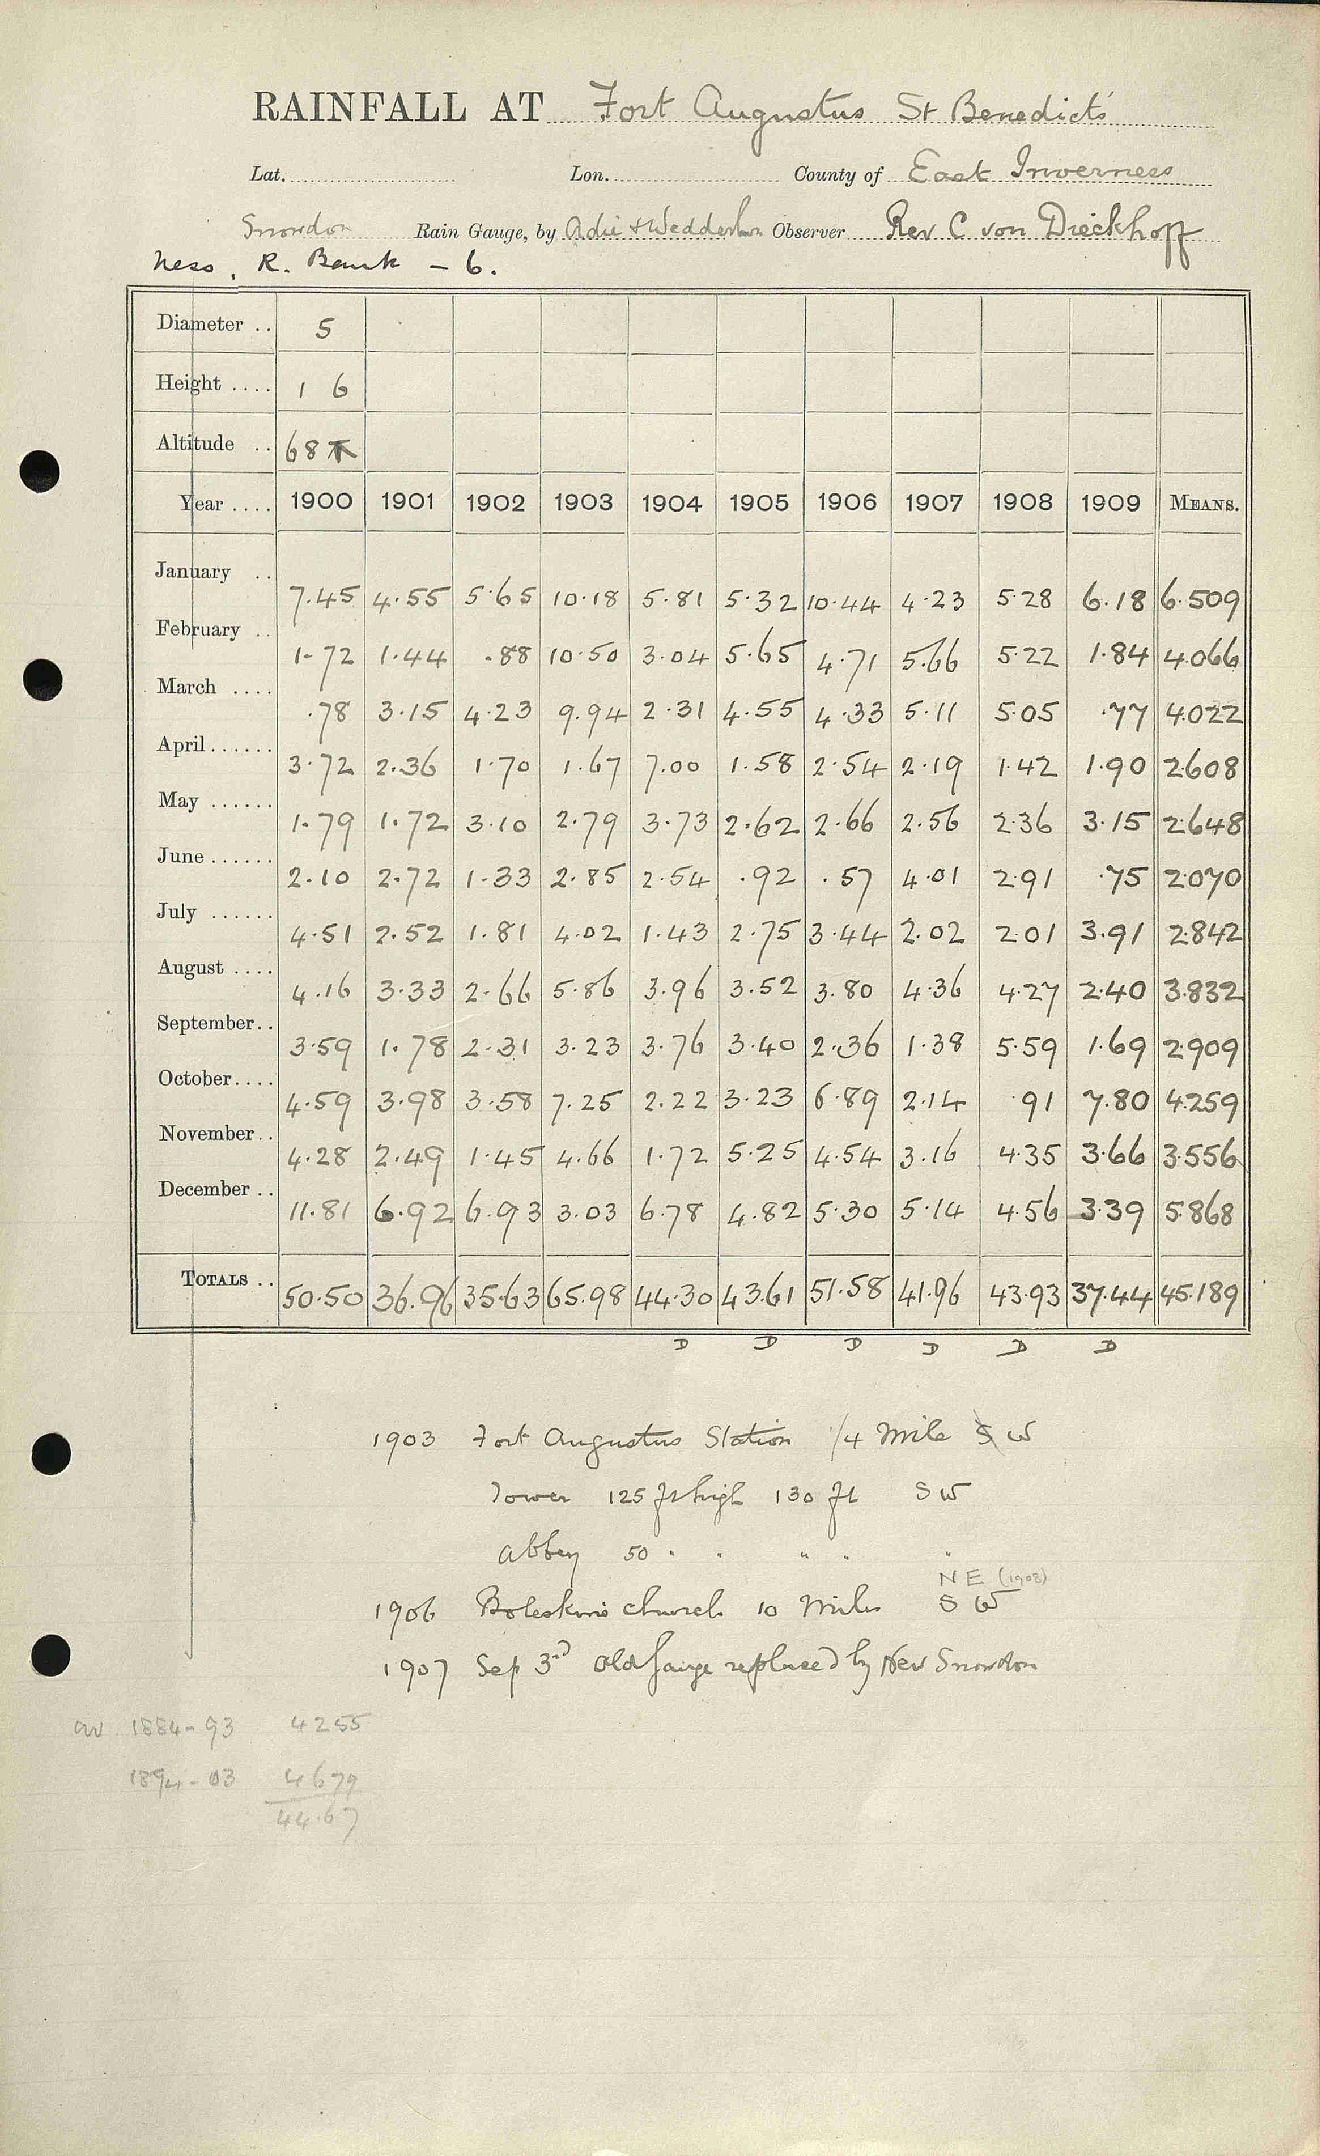 RAINFALL AT Fort Augustus St Benedict's
Lat. Lon. County of East Inverness
Snowdon Rain Gauge, by Adie & Wedderburn Observer Rev C von Dieckhoff
Ness, R. Bank - 6.
Diameter .. 5
Height .... 1 6
Altitude .. 68
Year .... 1900 1901 1902 1903 1904 1905 1906 1907 1908 1909 MEANS.
January .. 7.45 4.55 5.65 10.18 5.81 5.32 10.44 4.23 5.28 6.18 6.509
February .. 1.72 1.44 .88 10.50 3.04 5.65 4.71 5.66 5.22 1.84 4.066
March .... .78 3.15 4.23 9.94 2.31 4.55 4.33 5.11 5.05 .77 4.022
April ...... 3.72 2.36 1.70 1.67 7.00 1.58 2.54 2.19 1.42 1.90 2.608
May ...... 1.79 1.72 3.10 2.79 3.73 2.62 2.66 2.56 2.36 3.15 2.648
June ...... 2.10 2.72 1.33 2.85 2.54 .92 .57 4.01 2.91 .75 2.070
July ...... 4.51 2.52 1.81 4.02 1.43 2.75 3.44 2.02 2.01 3.91 2.842
August .... 4.16 3.33 2.66 5.86 3.96 3.52 3.80 4.36 4.27 2.40 3.832
September.. 3.59 1.78 2.31 3.23 3.76 3.40 2.36 1.38 5.59 1.69 2.909
October.... 4.59 3.98 3.58 7.25 2.22 3.23 6.89 2.14 .91 7.80 4.259
November.. 4.28 2.49 1.45 4.66 1.72 5.25 4.54 3.16 4.35 3.66 3.556
December .. 11.81 6.92 6.93 3.03 6.78 4.82 5.30 5.14 4.56 3.39 5.868
TOTALS .. 50.50 36.96 35.63 65.98 44.30 43.61 51.58 41.96 43.93 37.44 45.189
D D D D D D
1903 Fort Augustus Station 1/4 Mile S W
Tower 125 ft high 130 ft SW
Abbey 50 " " " " "
NE (1908)
1906 Boleskine church 10 Miles SW
1907 Sep 3rd Old Gauge replaced by New Snowdon
av 1884-93 4255
1894-03 4679
44.67